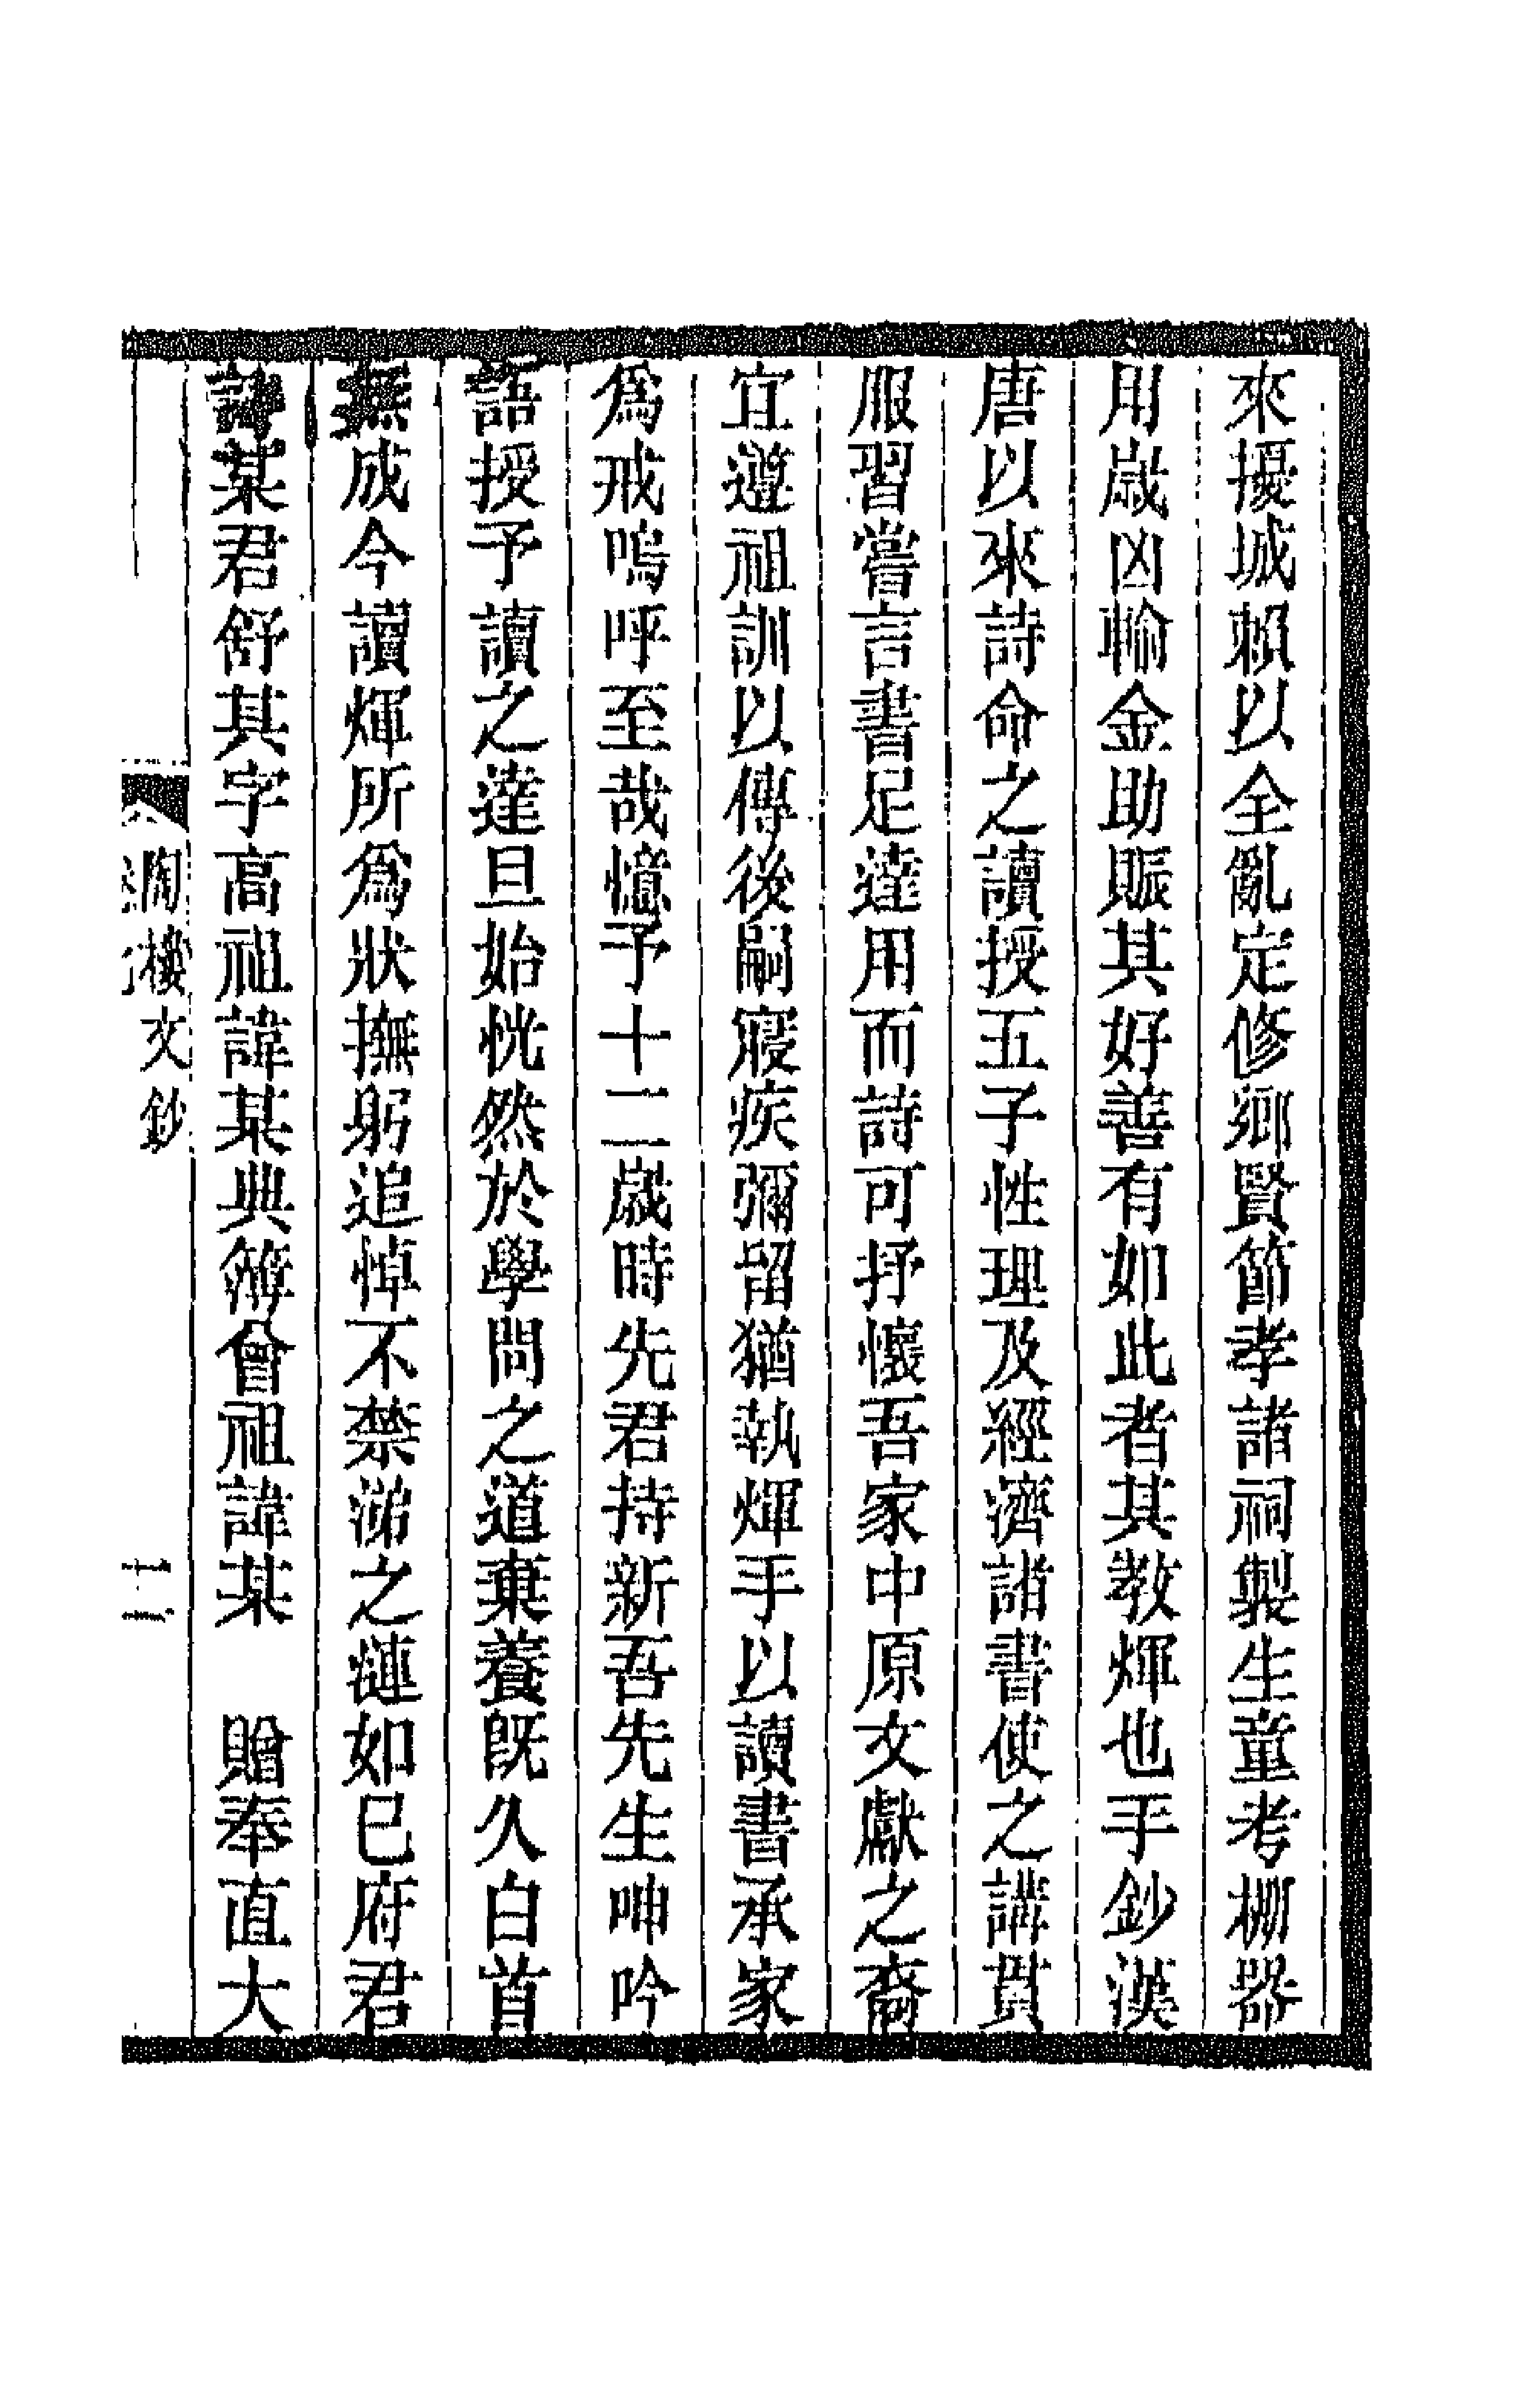 來擾城賴以全亂定修鄉賢節孝諸祠製生童考棚器
用歲凶輸金助賑其好善有如此者其教煇也手鈔漢
唐以來詩命之讀授五子性理及經濟諸書使之講貫
服習嘗言書足達用而詩可抒懷吾家中原文獻之裔
宜遵祖訓以傳後嗣寢疾彌留猶執煇手以讀書承家
爲戒嗚呼至哉憶予十二歲時先君持新吾先生呻吟
語授予讀之達旦始恍然於學問之道棄養旣久白首
無成今讀煇所爲狀撫躬追悼不禁涕之漣如已府君
諱某君舒其字高祖諱某典簿曾祖諱某　贈奉直大
陶樓文鈔
十一